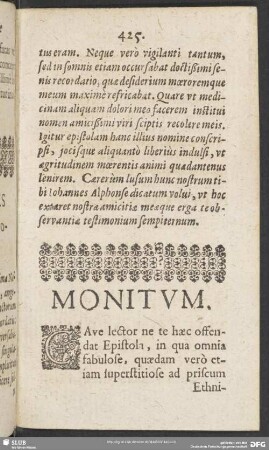 425.
tus eram. Neque verò vigilanti tantum,
sed in somnis etiam occursabat doctißimi se-
nis recordatio, quæ desiderium mœroremque
meum maximè refricabat. Quare vt medi-
cinam aliquam dolori meo facerem institui
nomen amicißimi viri sciptis recolere meis.
Igitur epistolam hanc illius nomine conscri-
psi, jocisque aliquantò liberiùs indulsi, vt
ægritudinem mœrentis animi quadantenus
lenirem. Cæterùm lusum hunc nostrum ti-
bi Iohannes Alphonse dicatum volui, vt hoc
extaret nostræ amicitiæ meæque erga te ob-
servantiæ testimonium sempiternum.
MONITVM.
CAve lector ne te hæc offen-
dat Epistola, in qua omnia
fabulose, quædam verò et-
iam superstitiose ad priscum
Ethni-
SLUB
DFG